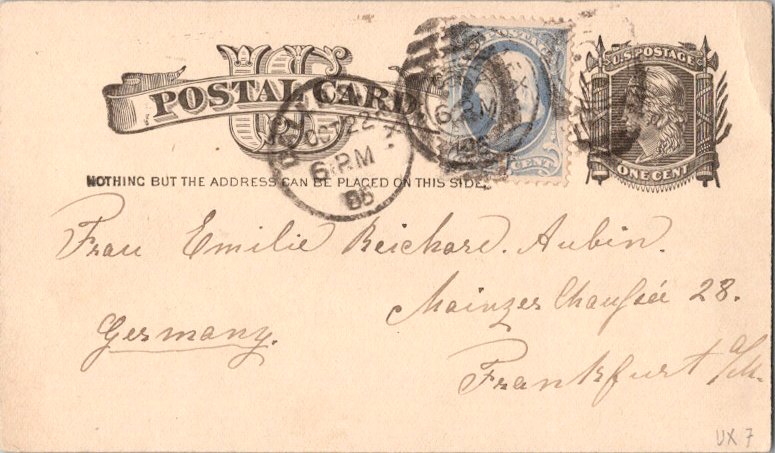 US
POSTAL CARD
U.S. POSTAGE
ONE CENT
NOTHING BUT THE ADDRESS CAN BE PLACED ON THIS SIDE.
OCT 22
6 P.M
6 P.M
POSTA
CENT
Frau Emilie Reichard. Aubin.
Mainzer Chaussée 28.
Germany.
Frankfurt a/M.
UX 7